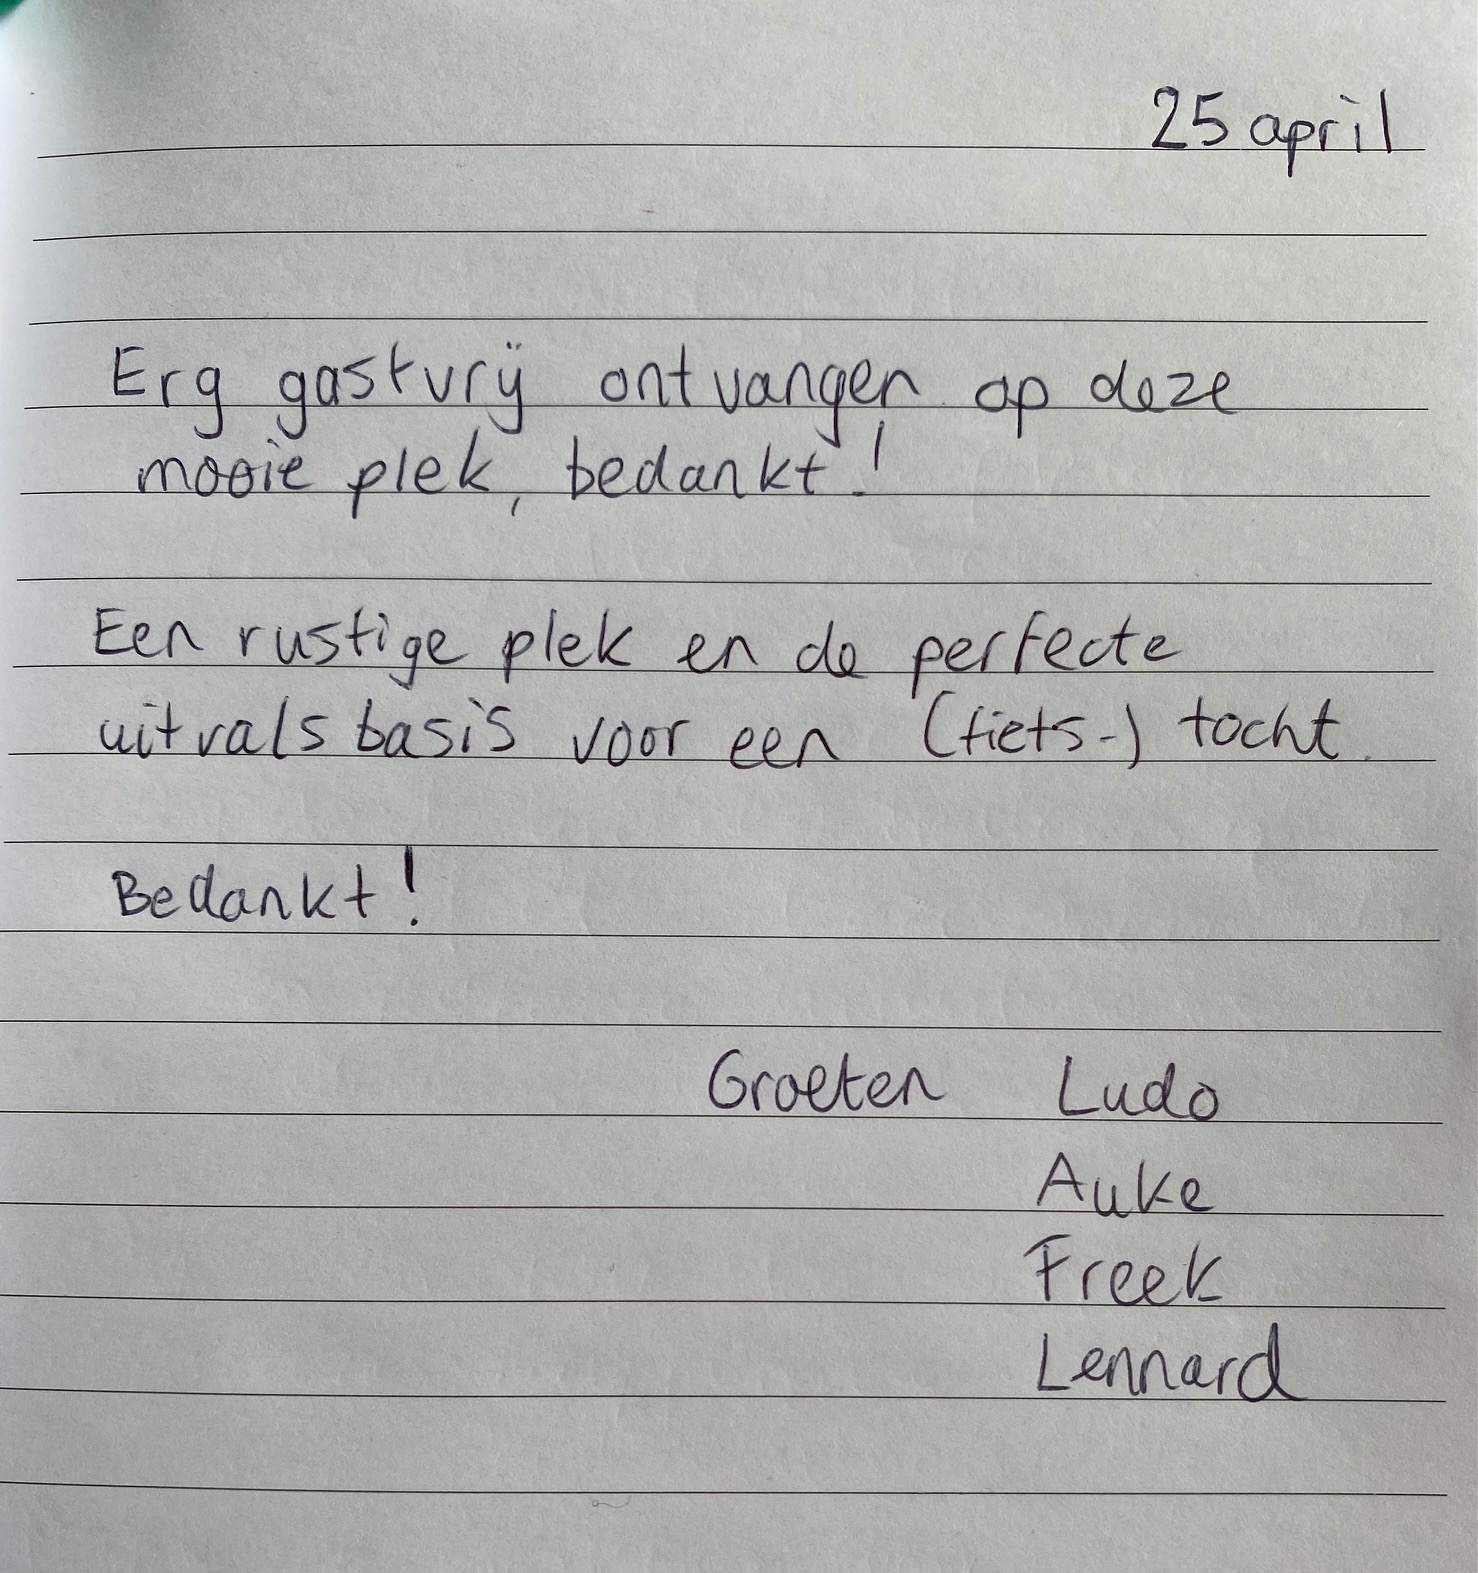 25 april
Erg gastvrij ontvangen op deze
mooie plek, bedankt!
Een rustige plek en de perfecte
uitvalsbasis voor een (fiets-) tocht.
Bedankt!
Groeten Ludo
Auke
Freek
Lennard